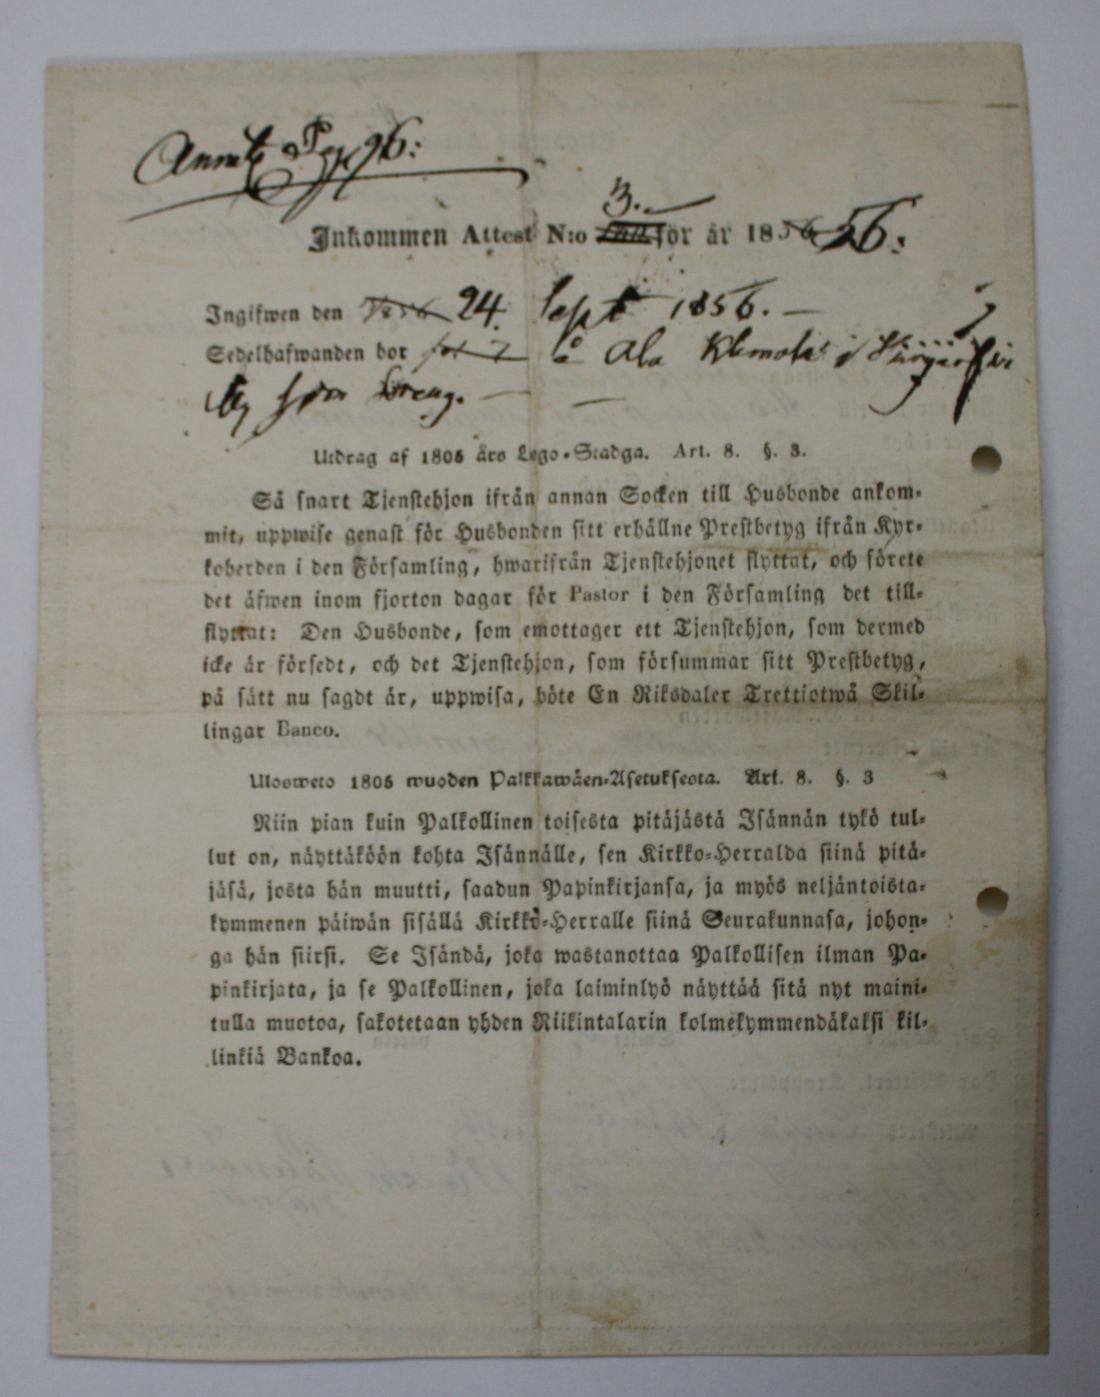 Pag 96:
3.
Inkommen Attest N:o för år 1856 56:
Ingifwen den 24. Sept 1856. —
Sedelhafwanden bor å Ala Klemola i
by som Dreng. —
Utdrag af 1805 års Lego-Stadga. Art. 8. §. 3.
Så snart Tjenstehjon ifrån annan Socken till Husbonde ankom-
mit, uppwise genast för Husbonden sitt erhållne Prestbetyg ifrån Kyr-
koherden i den Församling, hwarifrån Tjenstehjonet flyttat, och förete
det äfwen inom fjorton dagar för Pastor i den Församling det till-
flyttat: Den Husbonde, som emottager ett Tjenstehjon, som dermed
icke är försedt, och det Tjenstehjon, som försummar sitt Prestbetyg,
på sätt nu sagdt är, uppwisa, böte En Riksdaler Trettiotwå Skil-
lingar Banco.
Ulosweto 1805 wuoden Palkkawäen-Asetuksesta. Art. 8. §. 3
Niin pian kuin Palkollinen toisesta pitäjästä Isännän tykö tul-
lut on, näyttäköön kohta Isännälle, sen Kirkko-Herralda siinä pitä-
jäsä, josta hän muutti, saadun Papinkirjansa, ja myös neljäntoista-
kymmenen päiwän sisällä Kirkko-Herralle siinä Seurakunnasa, johon-
ga hän siirsi. Se Isändä, joka wastanottaa Palkollisen ilman Pa-
pinkirjata, ja se Palkollinen, joka laiminlyö näyttää sitä nyt maini-
tulla muotoa, sakotetaan yhden Riikintalarin kolmekymmendäkaksi kil-
linkiä Bankoa.